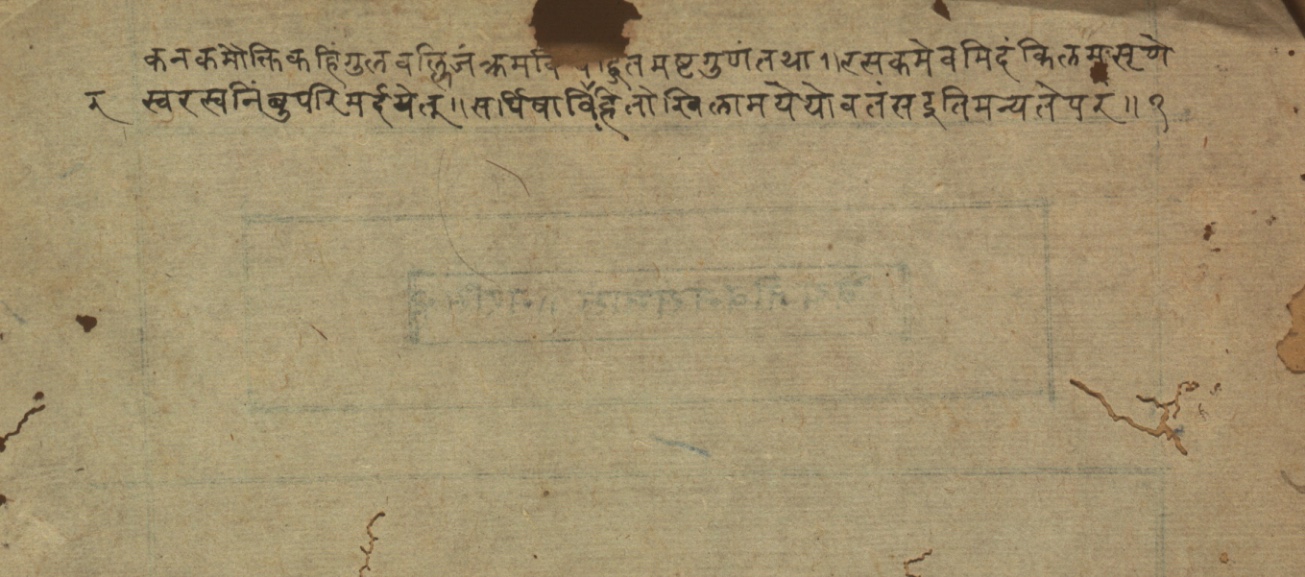 कनकमौक्तिकहिंगुलवल्लिजं क्रमवि द्धुतमष्टगुणं तथा ।। रसकमेवमिदं किल मसृणे
र स्वरस्वनिंबुपरिमर्द्दयेत् ॥ सर्पिषा र्विहितो खिलामयेयो वतंस इति मन्यते परं ॥ १